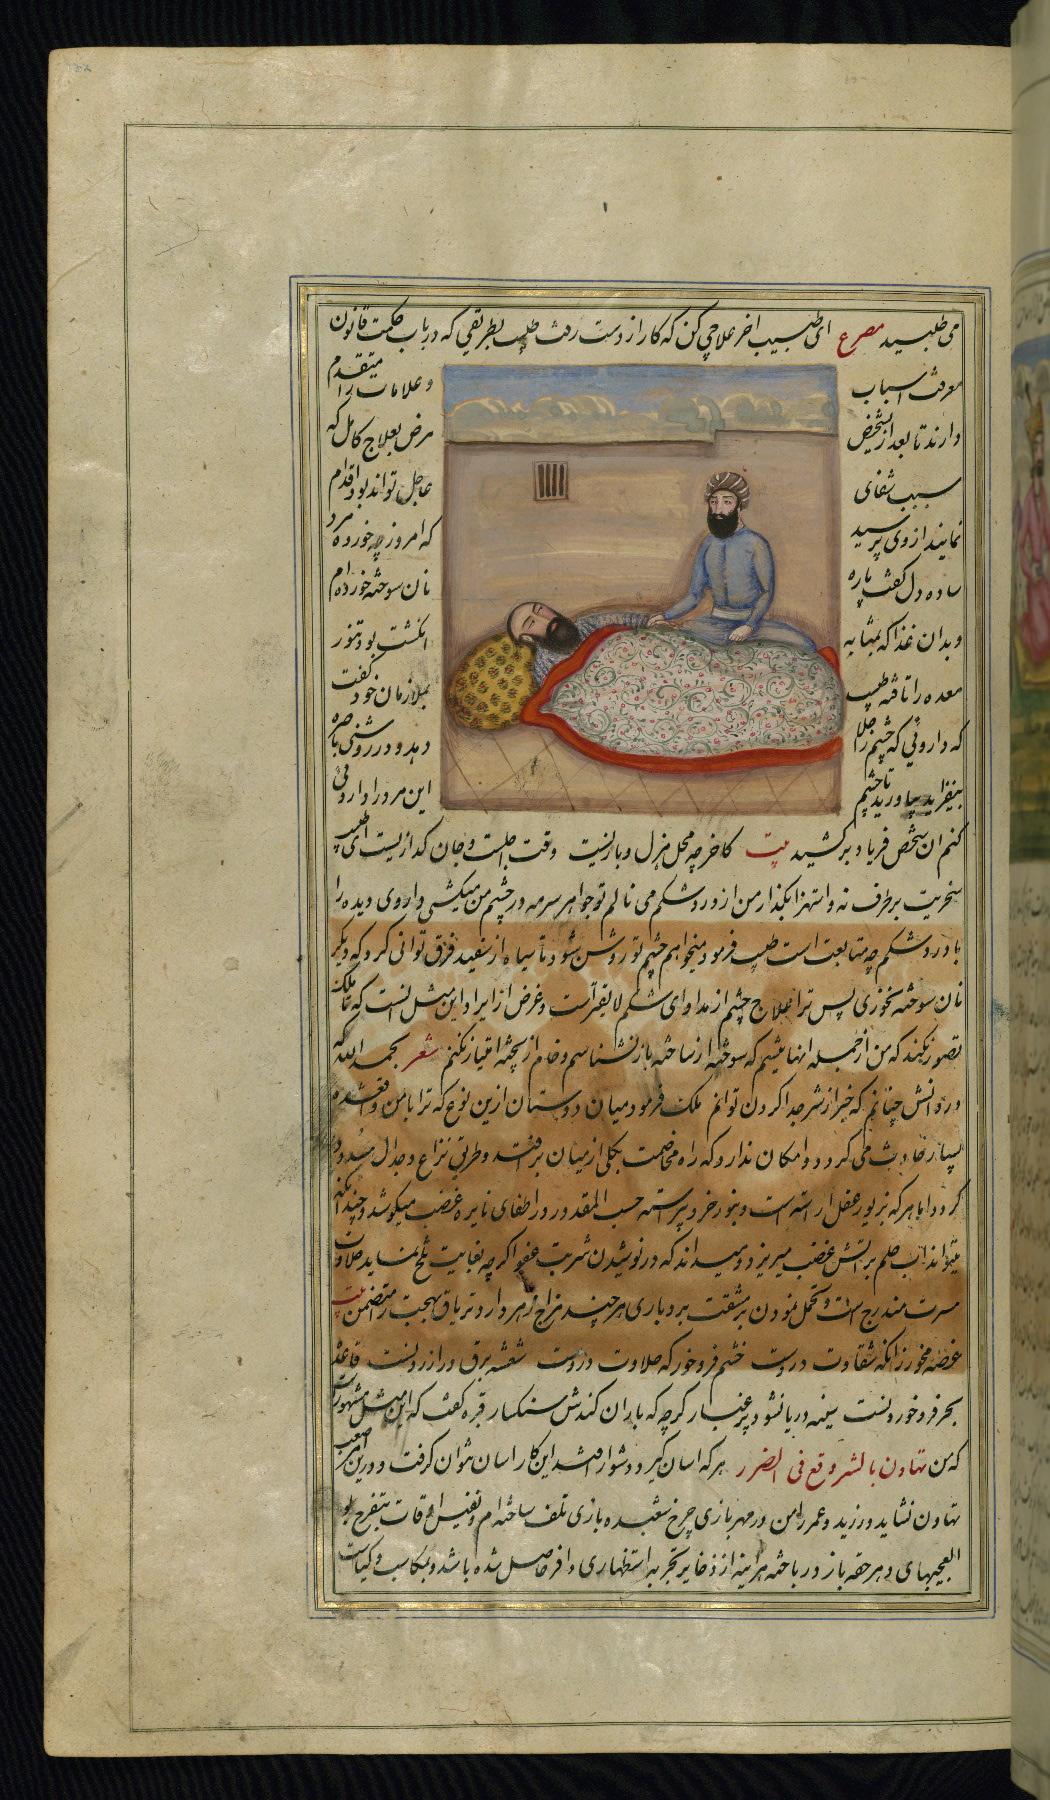 می طلبید مصرع ای طبیب اخر علاجی کن که کار از دست رفت طبیب بطریقی که در باب حکمت قانون
معرفت اسباب و علامات را متقدم
دارند تا بعد از تشخیص مرض بعلاج کامل که
سبب شفای عاجل تواند بود اقدام
نمایند از وی پرسید که امروز چه خورده مرد
ساده دل گفت پاره نان سوخته خورده ام
و بدان غذا که بمثابه انگشت بود تنور
معده را تافته طبیب بملازمان خود گفت
که داروئی که چشم را جلا دهد و در روشنی باصره
بیفزاید بیاورید تا چشم این مرد را داروئی
کنم ان شخص فریاد برکشید بیت کاخر چه محل هزل و بازیست وقت اجلست و جان گدازیست ای طبیب
سخریت برطرف نه و استهزا بگذار من از درد شکم می نالم تو جواهر سرمه در چشم من میکشی داروی دیده را
با درد شکم چه متابعت است طبیب فرمود میخواهم چشم تو روشن شود تا سیاه از سفید فرق توانی کرد که دیگر
نان سوخته نخوری پس ترا علاج چشم از مداوای شکم لایقتر است و غرض از ایراد این مثل انست که تا ملک
تصور نکند که من از جمله انهایم که سوخته از ساخته باز نشناسم و خام از پخته امتیاز نکنم شعر بحمد الله که
در دانش چنانم که خیر از شر جدا کردن توانم ملک فرمود میان دوستان ازین نوع که ترا با من واقع شده
بسیار حادث می گردد و امکان ندارد که راه مخاصمت بکلی از میان برافتد و طریق نزاع و جدال مسدود
گردد اما هر که بزیور عقل اراسته است و بنور خرد پیراسته حسب المقدور در اطفای نایره غضب میکوشد و چندانکه
میتواند اب حلم بر اتش غضب میریزد و میداند که در نوشیدن شربت عفو اگرچه بغایت تلخ نماید حلاوت
مسرت مندرج است و تحمل نمودن بر مشقت بردباری هر چند مزاج زهر دارد تریاق بهجت را متضمن بیت
غصه مخور زانکه شقاوت دروست خشم فرو خور که حلاوت دروست شعشعه برق در ازردنست قاعده
بحر فرو خوردنست سینه دریا نشود پر غبار گرچه که باران کندش سنگسار قبره گفت که این مثل مشهورست
که من تهاون بالشر وقع فی الضرر هر که اسان گیرد دشوار افتد این کار اسان نتوان گرفت و درین امر صعب
تهاون نشاید ورزید و عمر را من در مهره بازی چرخ شعبده بازی تلف ساخته ام و نفیس اوقات بتفرج بو
العجبیهای دهر حقه باز در باخته هراینه از ذخایر تجربه استظهاری وافر حاصل شده باشد و بمکاسب و کیاست